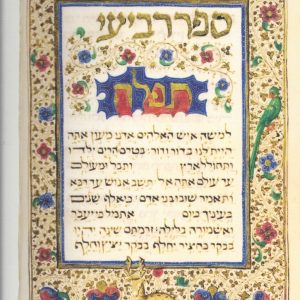 ספר רביעי
תפלה
למשה איש האלהים אדני מעון אתה
היית לנו בדור ודור בטרם הרים ילדו
ותחולל ארץ ותבל ומעולם
עד עולם אתה אל תשב אנוש עד דכא
ותאמר שובו בני אדם כי אלף שנים
בעיניך כיום אתמול כי יעבר
ואשמורה בלילה זרמתם שנה יהיו
בבקר כחציר יחלף בבקר יציץ וחלף